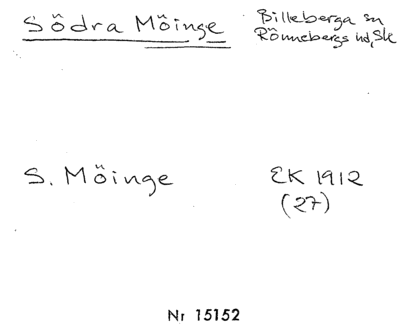 Södra Möinge
Billeberga sn
Rönnebergs hd, Sk
S. Möinge
EK 1912
(27)
Nr 15152